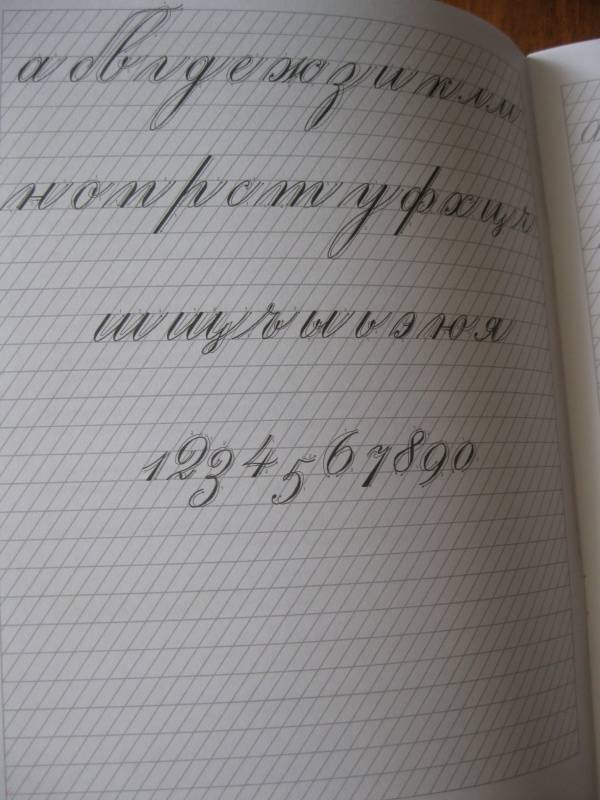 а б в г д е ж з и к л м
н о п р с т у ф х ц ч
ш щ ъ ы ь э ю я
1 2 3 4 5 6 7 8 9 0